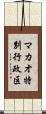 マカオ特別行政区